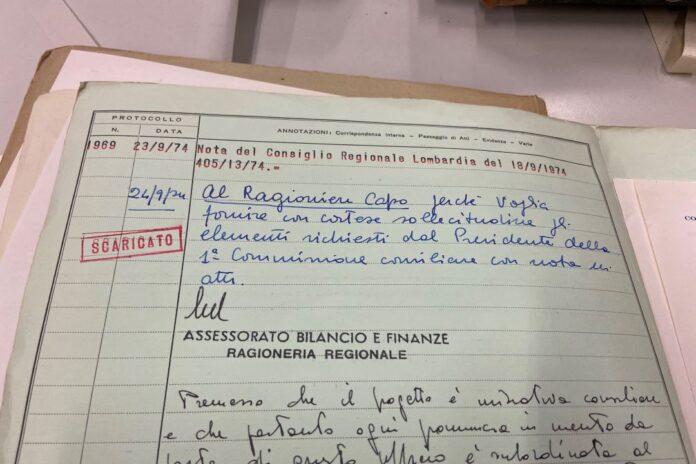 PROTOCOLLO
N. DATA
ANNOTAZIONI: Corrispondenza interna - Passaggio di Atti - Evidenze - Varie
1969 23/9/74 Nota del Consiglio Regionale Lombardia del 18/9/1974
405/13/74.=
24/9/74 Al Ragioniere Capo perché voglia
fornire con cortese sollecitudine gli
elementi richiesti dal Presidente della
SCARICATO
1ª Commissione consiliare con nota in
atti.
ASSESSORATO BILANCIO E FINANZE
RAGIONERIA REGIONALE
Premesso che il progetto è iniziativa consiliare
e che pertanto ogni pronuncia in merito da
parte di questo Ufficio è subordinata al
CO